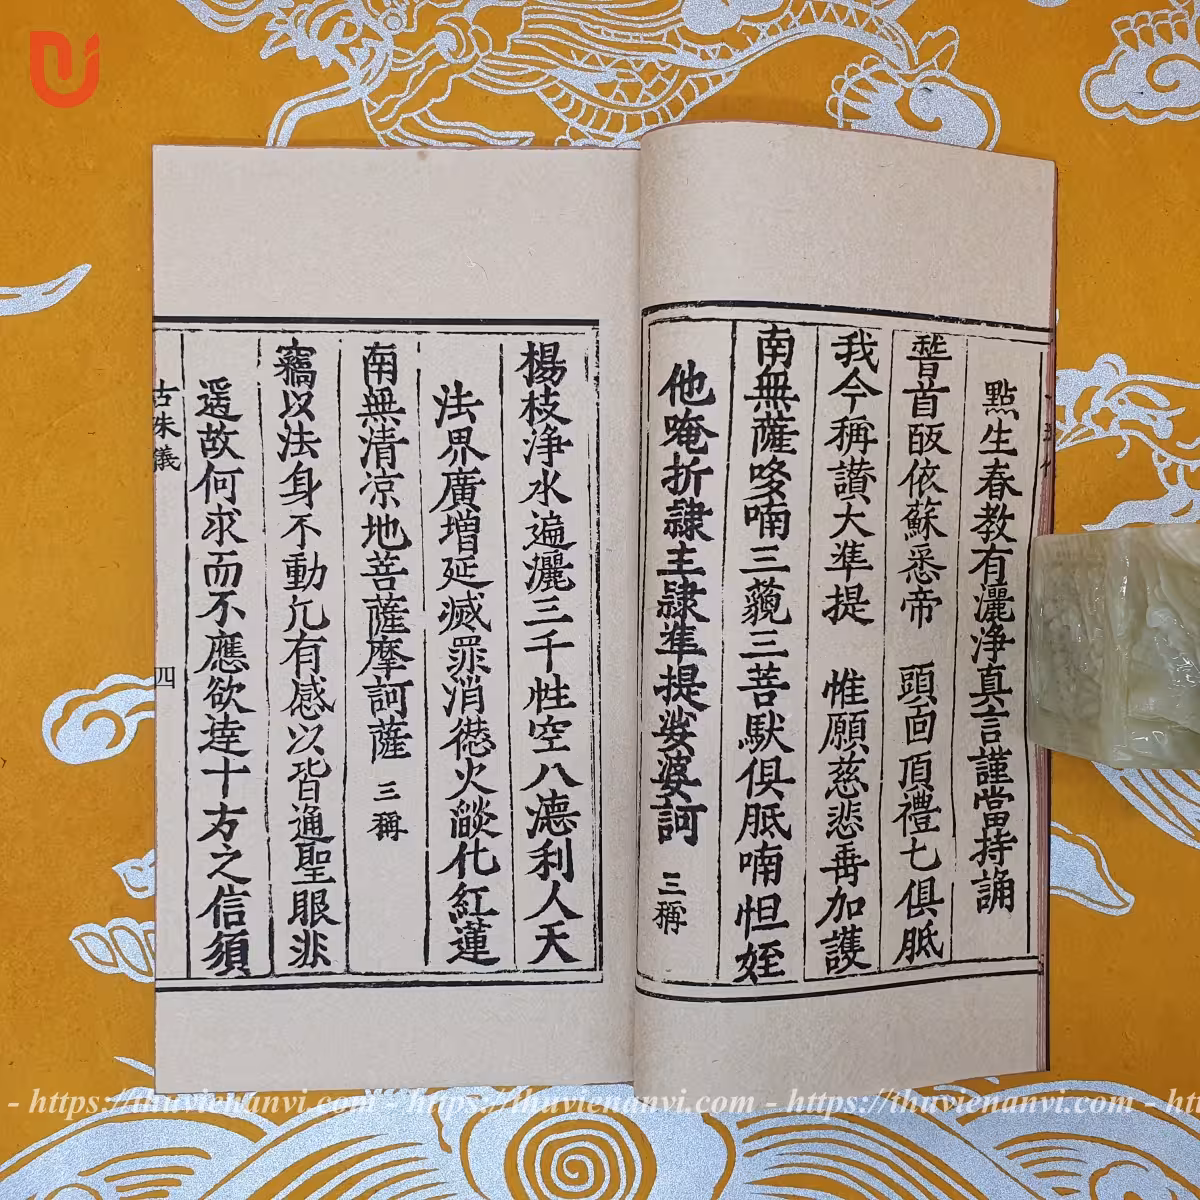 點生春教有灑淨真言謹當持誦
稽首皈依蘇悉帝 頭面頂禮七俱胝
我今稱讚大準提 惟願慈悲垂加護
南無薩哆喃三藐三菩馱俱胝喃怛姪
他唵折隷主隷準提娑婆訶 三稱
楊枝淨水遍灑三千性空八德利人天
法界廣增延滅罪消愆火燄化紅蓮
南無清凉地菩薩摩訶薩 三稱
竊以法身不動凢有感以皆通聖眼非
遥故何求而不應欲達十方之信須
古珠儀
四
- https://thuvienanvi.com - https://thuvienanvi.com - https://thuvienanvi.com -